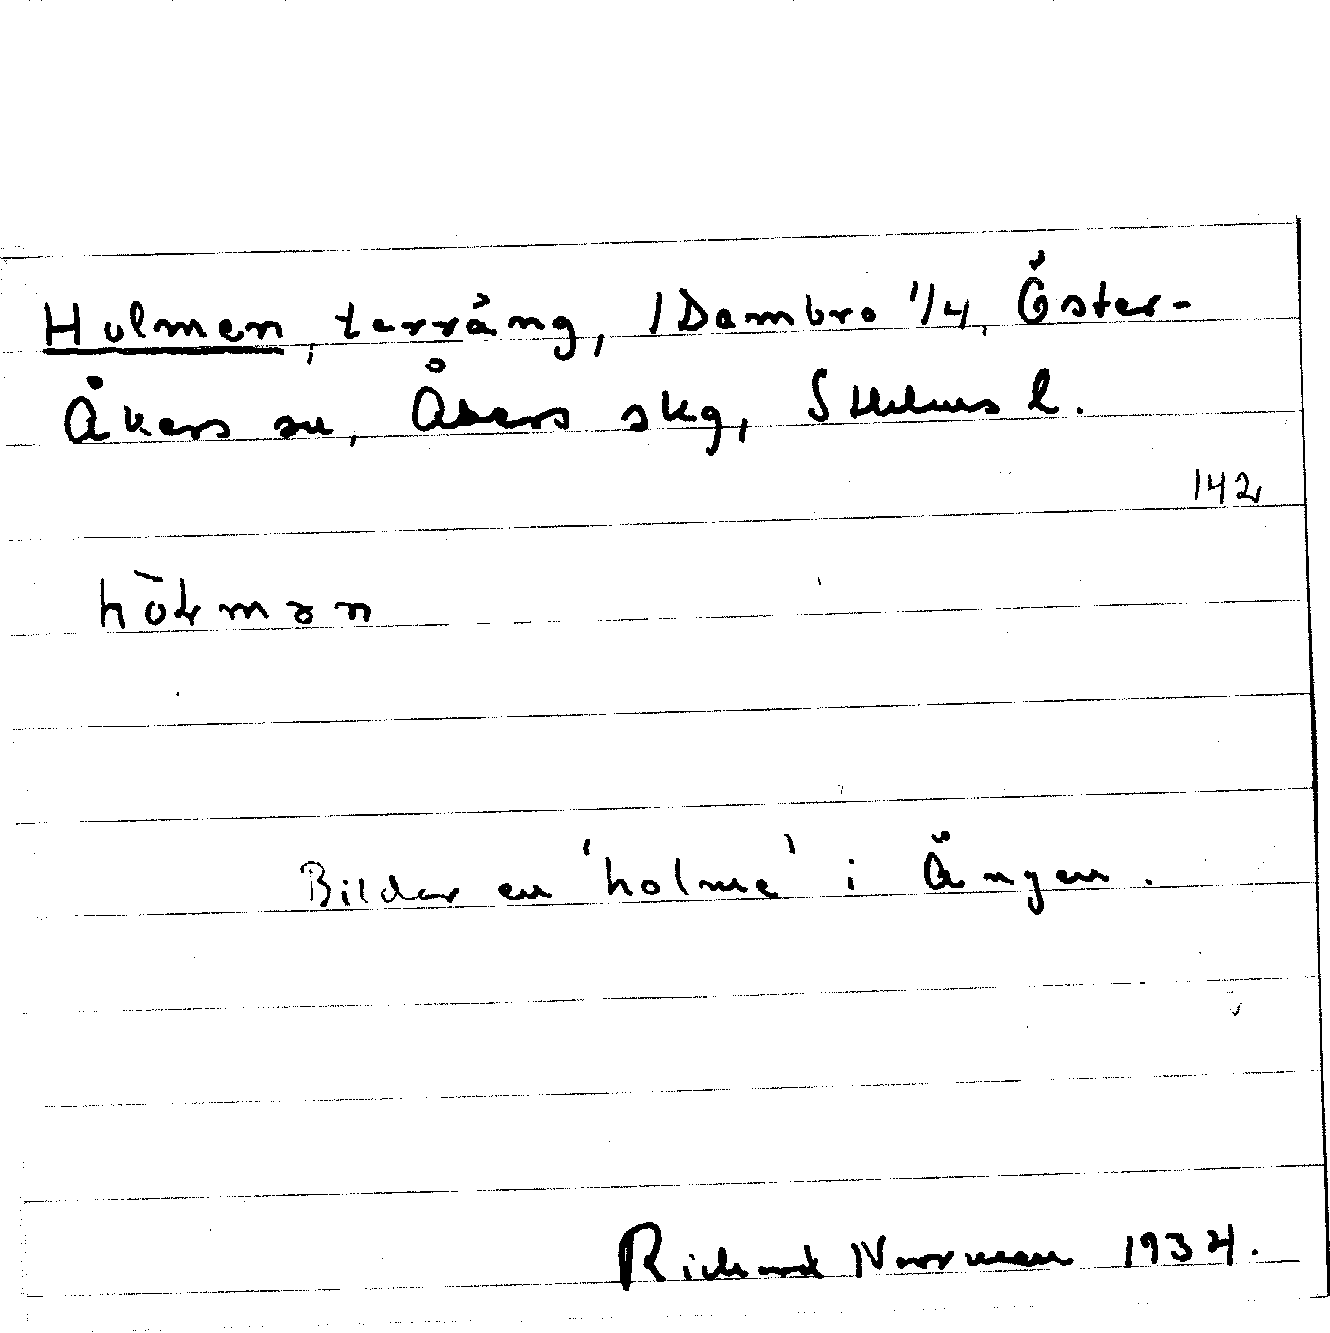 Holmen, terräng, 1 Dambro 1/4, Öster-
Åkers sn, Åkers skg, Sthlms l.
142
Bildar en 'holme' i Ängen.
Richard Norrman 1934.